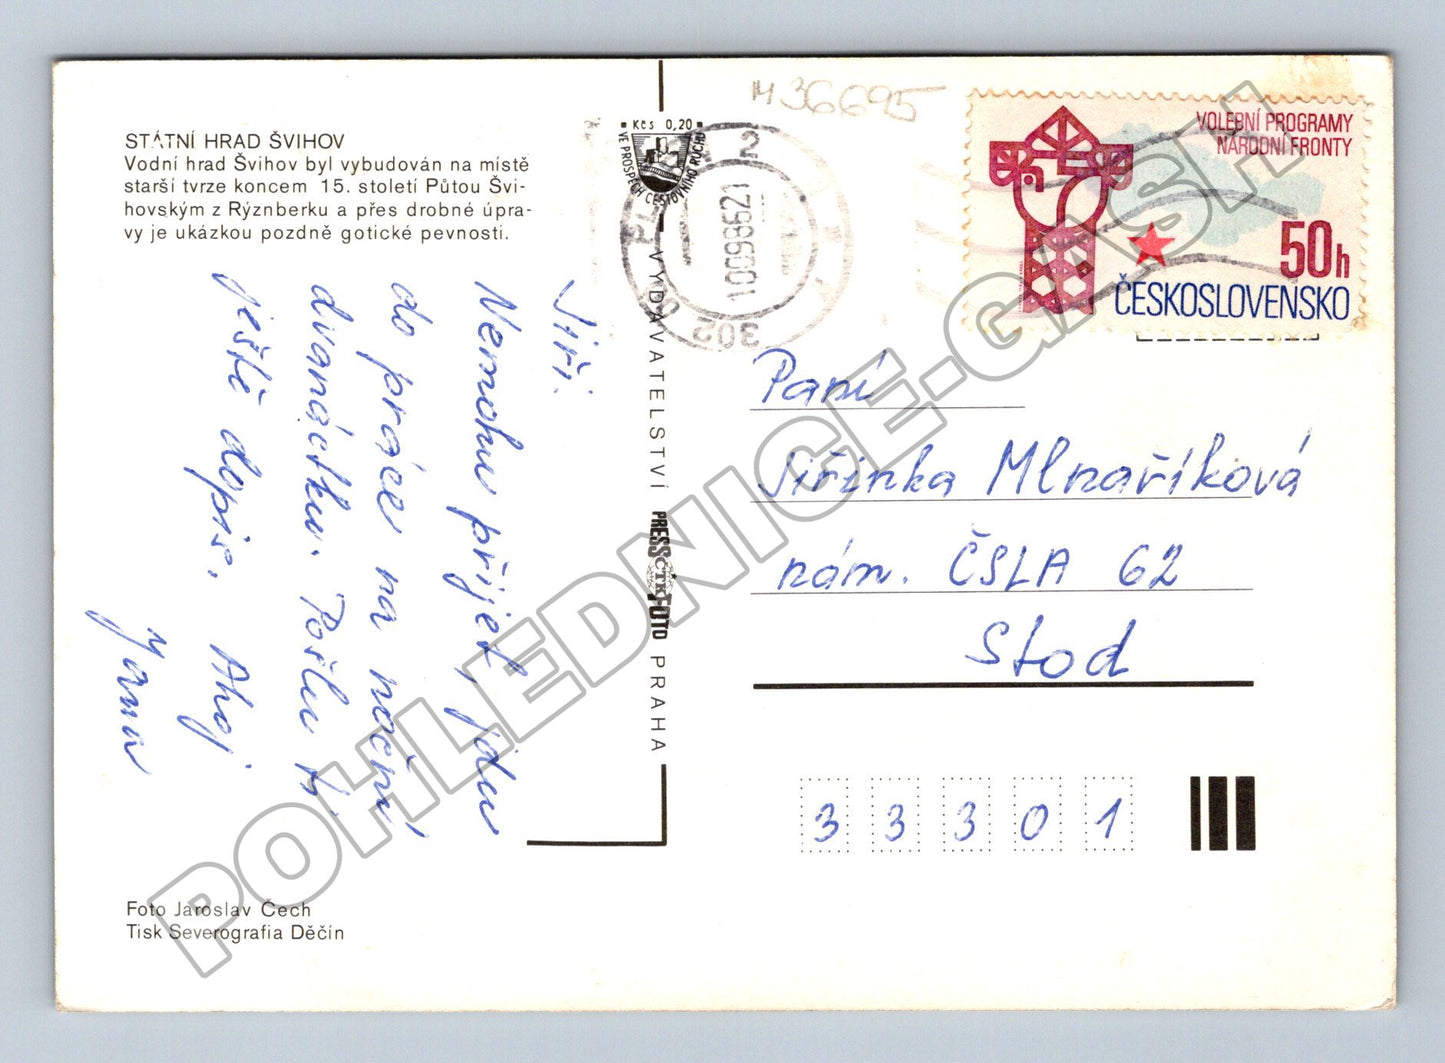 STÁTNÍ HRAD ŠVIHOV
Vodní hrad Švihov byl vybudován na místě
starší tvrze koncem 15. století Půtou Švi-
hovským z Rýznberku a přes drobné úpra-
vy je ukázkou pozdně gotické pevnosti.
Jiří.
Nemohu přijet, jdu
do práce na noční
dvanáctku. Pošlu ti
ještě dopis. Ahoj
Jana
Foto Jaroslav Čech
Tisk Severografia Děčín
Kčs 0,20
VE PROSPĚCH CESTOVNÍHO RUCHU
VYDAVATELSTVÍ PRESSFOTO PRAHA
ČTK
M 36695
2
10098621
302 00
VOLEBNÍ PROGRAMY
NÁRODNÍ FRONTY
50h
ČESKOSLOVENSKO
Paní
Jiřinka Mlnaříková
nám. ČSLA 62
Stod
33301
POHLEDNICE-GASH